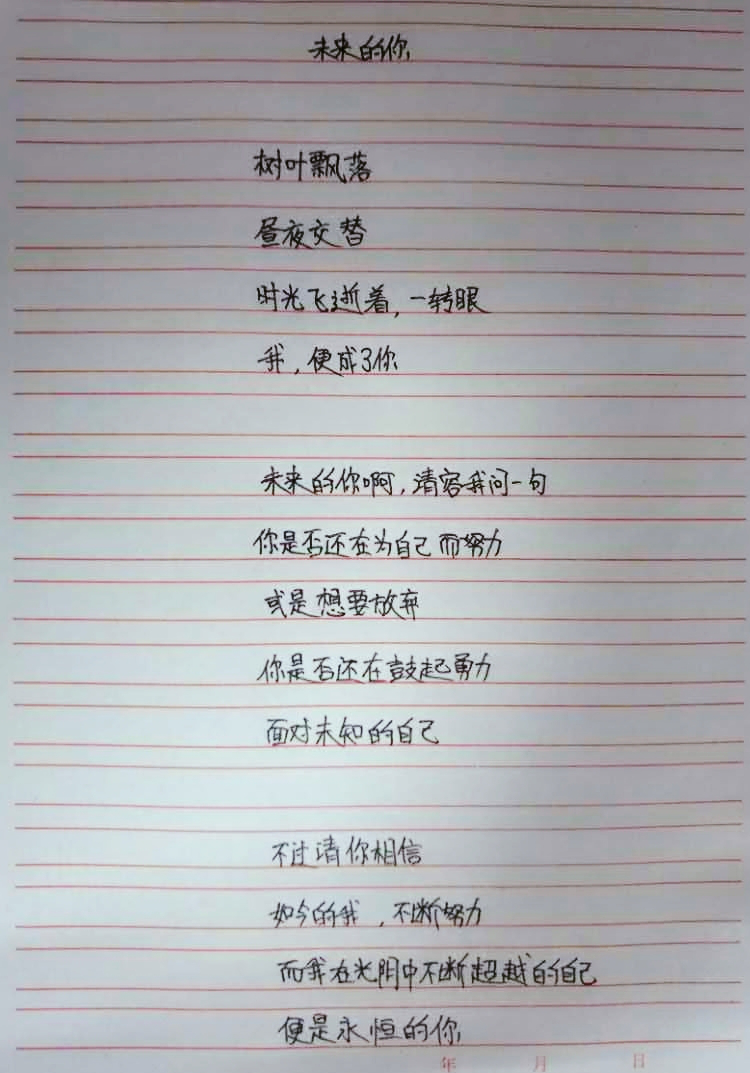 未来的你
树叶飘落
昼夜交替
时光飞逝着,一转眼
我,便成了你
未来的你啊,请容我问一句
你是否还在为自己而努力
或是想要放弃
你是否还在鼓起勇力
面对未知的自己
不过请你相信
如今的我,不断努力
而我在光阴中不断超越的自己
便是永恒的你
年 月 日